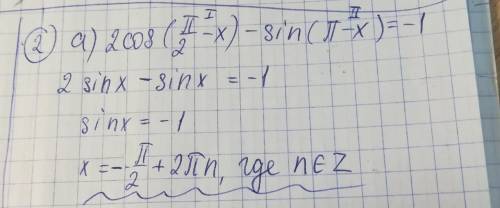 ② a) 2cos(π/2 - x) - sin(π - x) = -1
I II
2 sinx - sinx = -1
sinx = -1
x = -π/2 + 2πn, где n∈Z